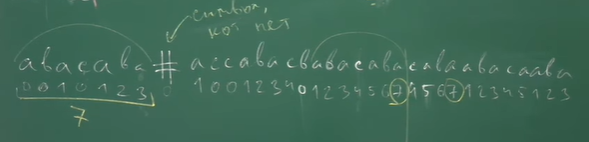 символ,
кот нет
abacaba # accabacbabacabacabaabacaaba
0 0 1 0 1 2 3 0 1 0 0 1 2 3 4 0 1 2 3 4 5 6 7 4 5 6 7 1 2 3 4 5 1 2 3
7